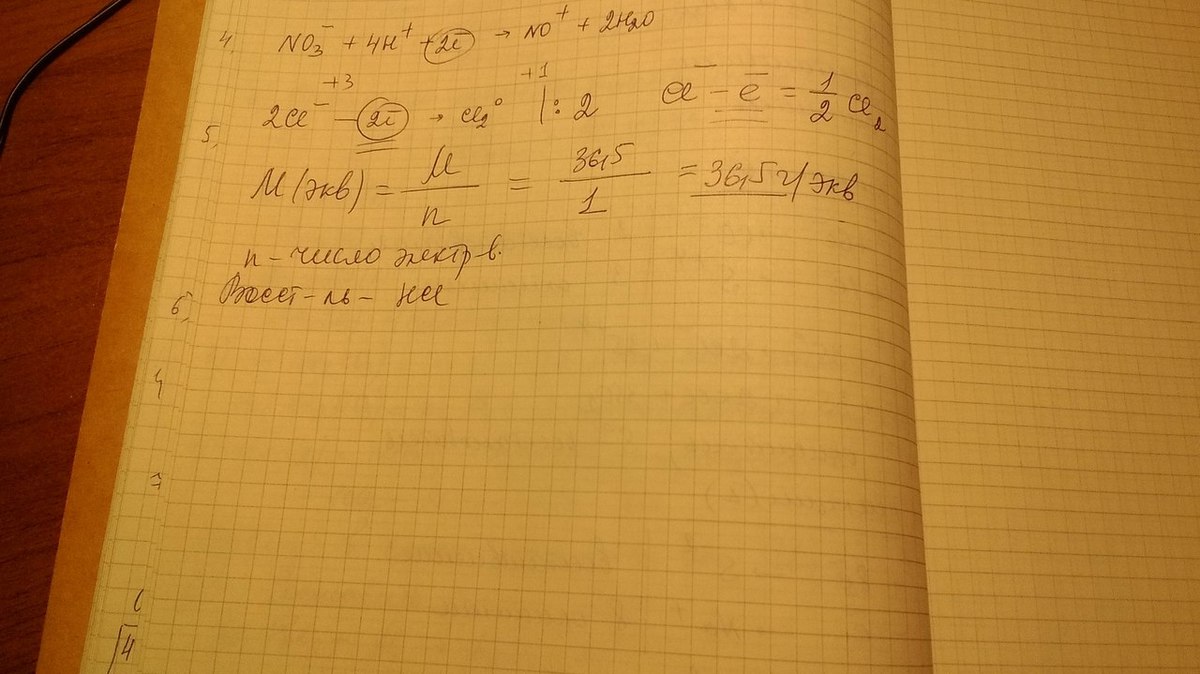 4. NO₃⁻ + 4H⁺ + 2ē → NO⁺ + 2H₂O
+3 +1
2Cl⁻ - 2ē → Cl₂⁰ |: 2 Cl⁻ - ē = 1/2 Cl₂
5. M(экв) = M/n = 36,5/1 = 36,5 г/экв
n - число электр-в.
6. Восст-ль - HCl
7